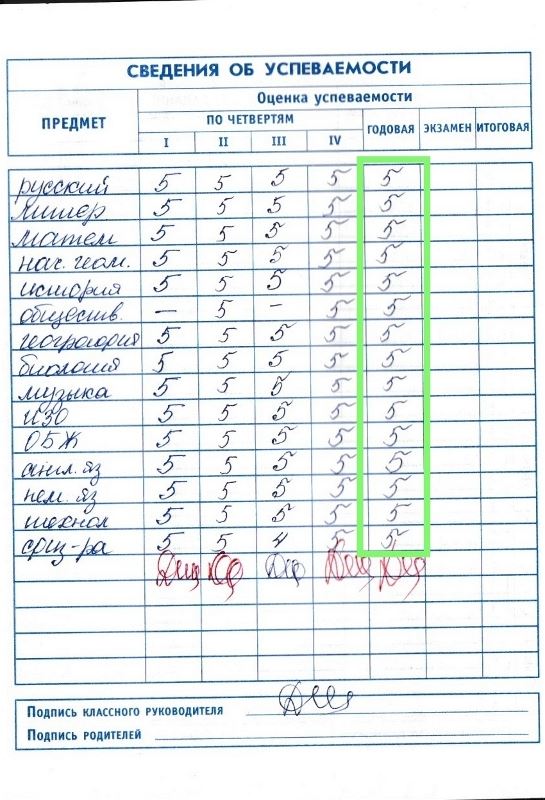 СВЕДЕНИЯ ОБ УСПЕВАЕМОСТИ
ПРЕДМЕТ
Оценка успеваемости
ПО ЧЕТВЕРТЯМ
ГОДОВАЯ ЭКЗАМЕН ИТОГОВАЯ
I II III IV
русский 5 5 5 5 5
литер 5 5 5 5 5
матем 5 5 5 5 5
нач. геом. 5 5 5 5 5
история 5 5 5 5 5
обществ. — 5 — 5 5
география 5 5 5 5 5
биология 5 5 5 5 5
музыка 5 5 5 5 5
ИЗО 5 5 5 5 5
ОБЖ 5 5 5 5 5
англ. яз 5 5 5 5 5
нем. яз 5 5 5 5 5
технол 5 5 5 5 5
физ-ра 5 5 4 5 5
Подпись классного руководителя
Подпись родителей